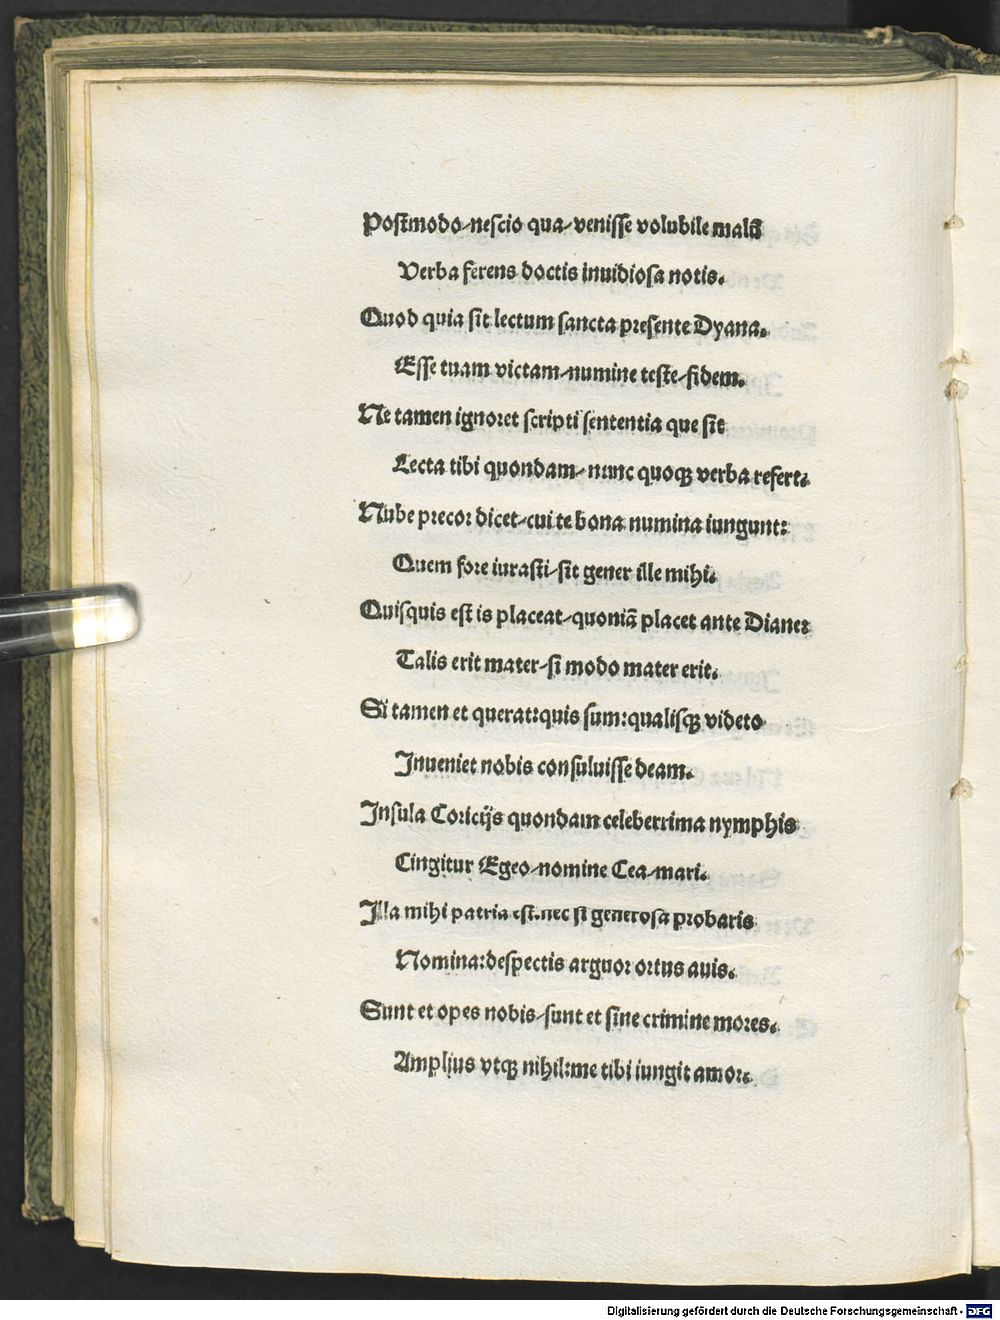 Postmodo/nescio qua/venisse volubile malū
Verba ferens doctis inuidiosa notis.
Quod quia sit lectum sancta presente Dyana.
Esse tuam victam/numine teste/fidem.
Ne tamen ignoret scripti sententia que sit
Lecta tibi quondam/nunc quoqꝫ verba refert.
Nube precor dicet/cui te bona numina iungunt:
Quem fore iurasti/sit gener ille mihi.
Quisquis est is placeat/quoniā placet ante Diane:
Talis erit mater/si modo mater erit.
Si tamen et querat:quis sum:qualisqꝫ videto
Inueniet nobis consuluisse deam.
Insula Coricijs quondam celeberrima nymphis
Cingitur Egeo/nomine Cea/mari.
Illa mihi patria est.nec si generosa probaris
Nomina:despectis arguor ortus auis.
Sunt et opes nobis/sunt et sine crimine mores.
Amplius vtqꝫ nihil:me tibi iungit amor.
Digitalisierung gefördert durch die Deutsche Forschungsgemeinschaft - DFG